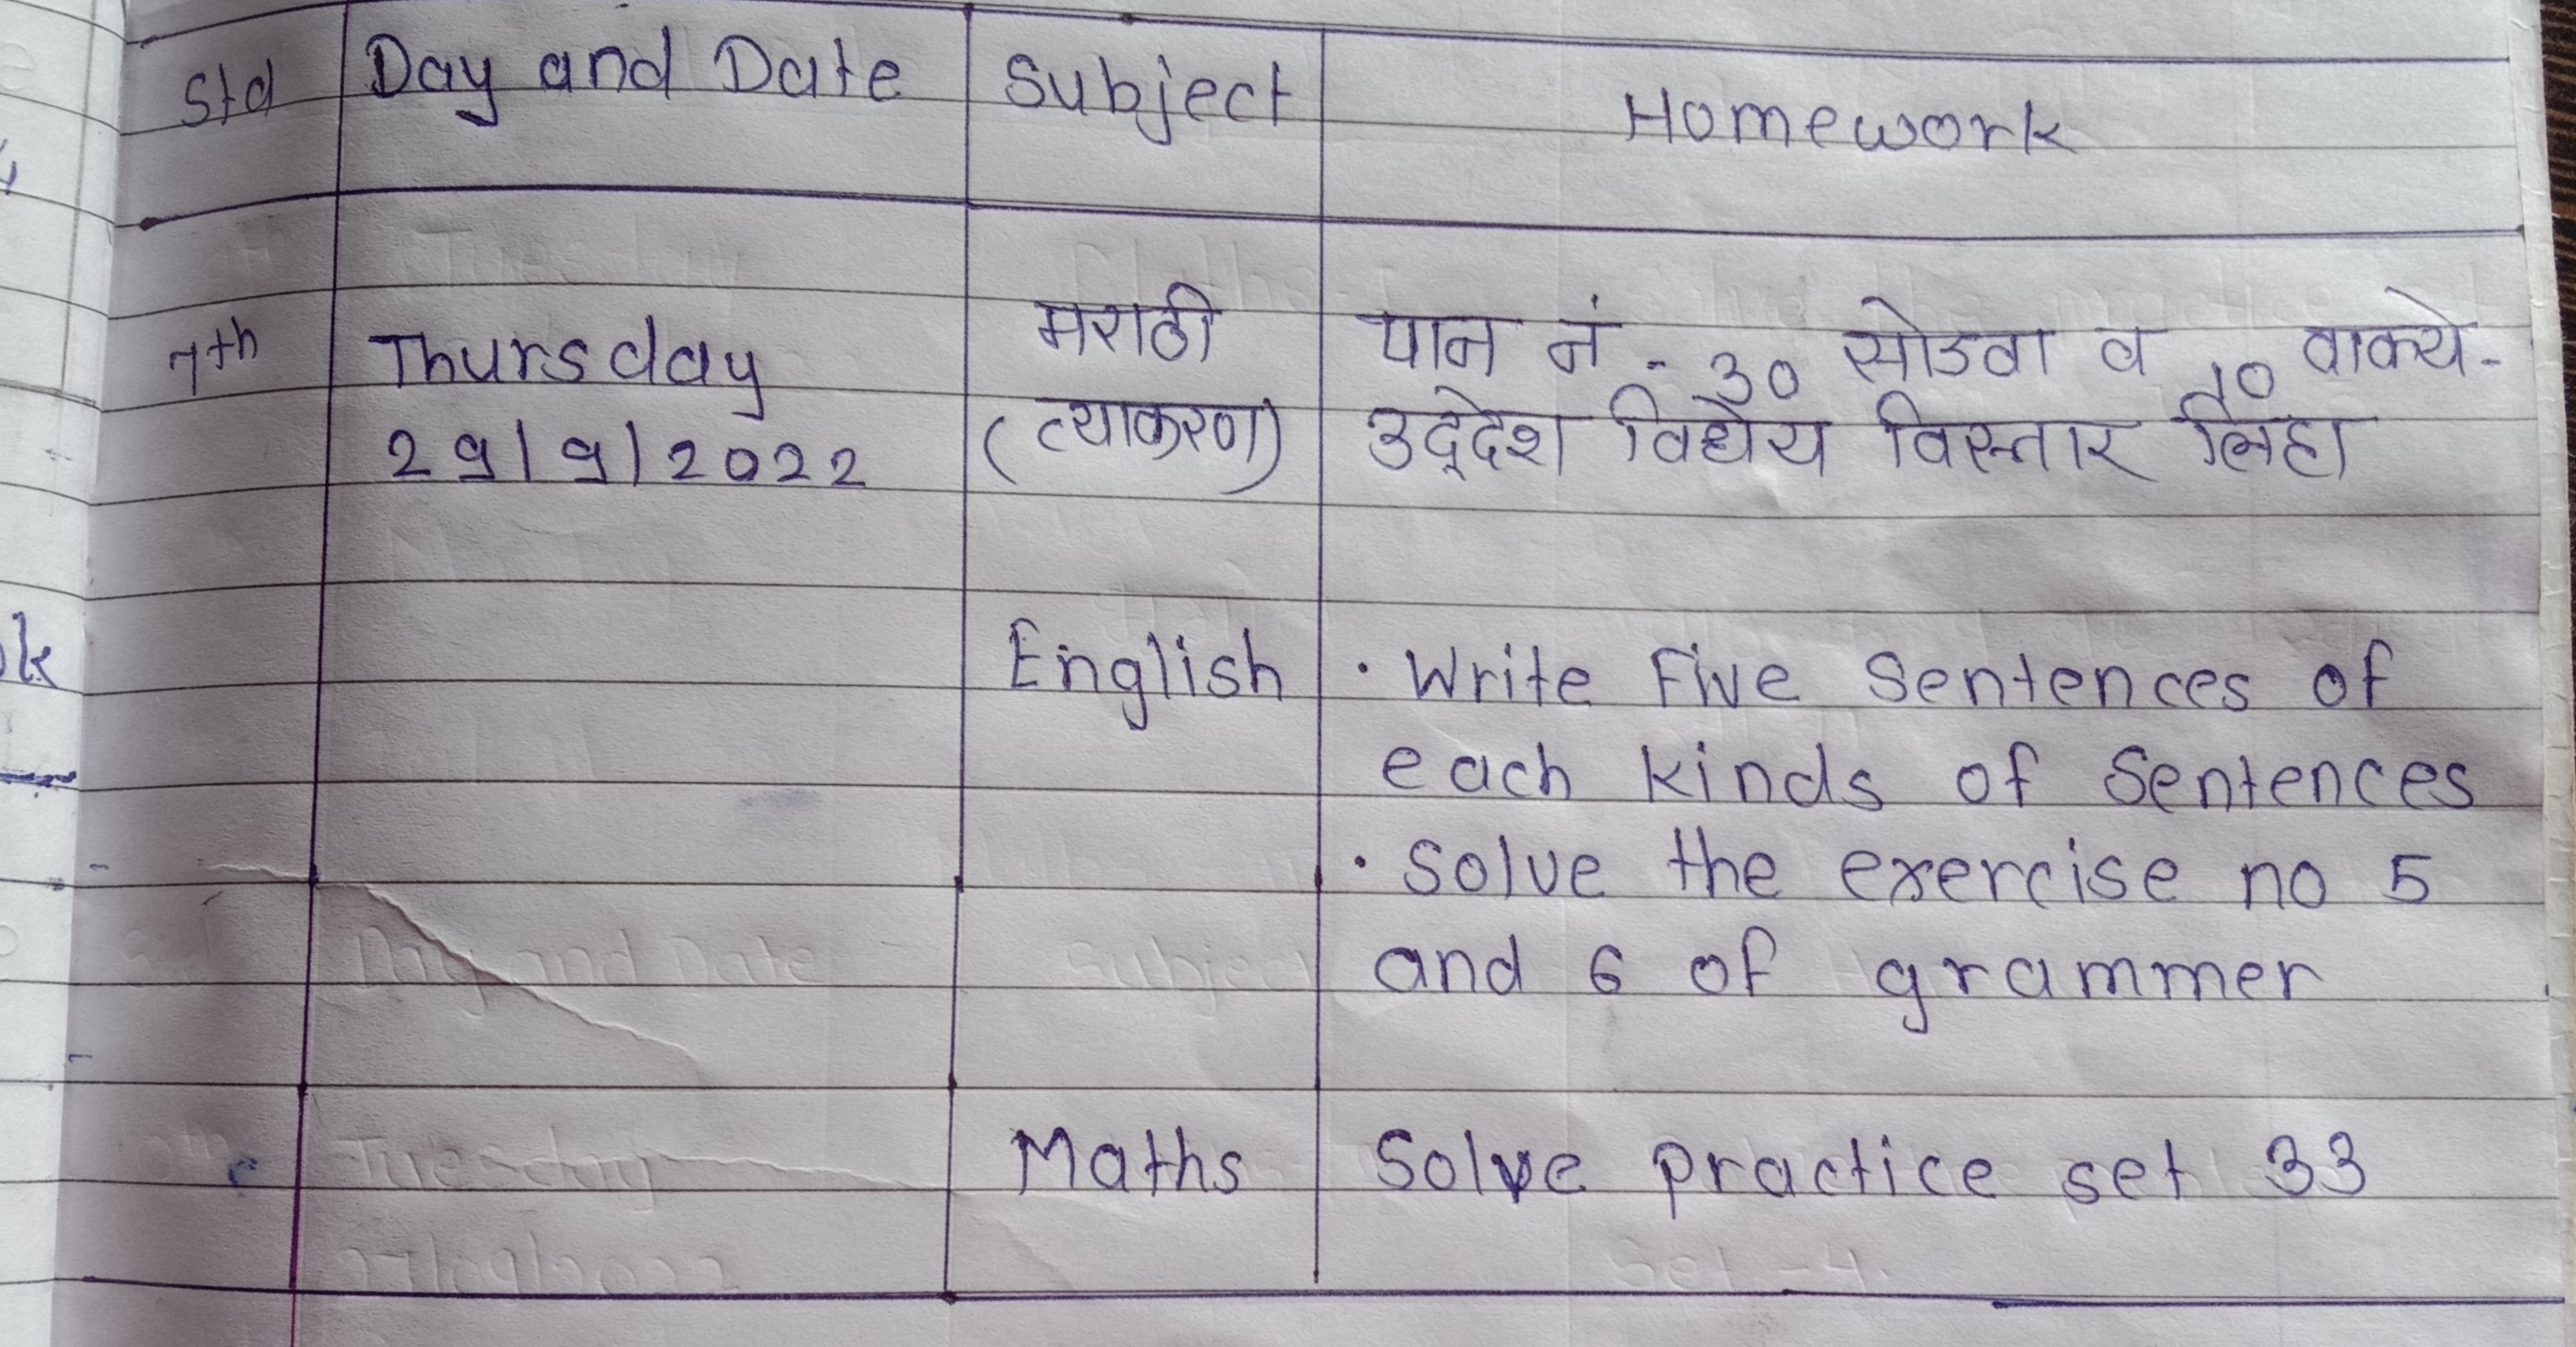 Std Day and Date Subject Homework
7th Thursday मराठी पान नं - 30 सोडवा व 10 वाक्ये-
29/9/2022 (व्याकरण) उद्देश विधेय विस्तार लिहा
English • Write Five Sentences of
each kinds of Sentences
• Solve the exercise no 5
and 6 of grammer
Maths Solve practice set 33